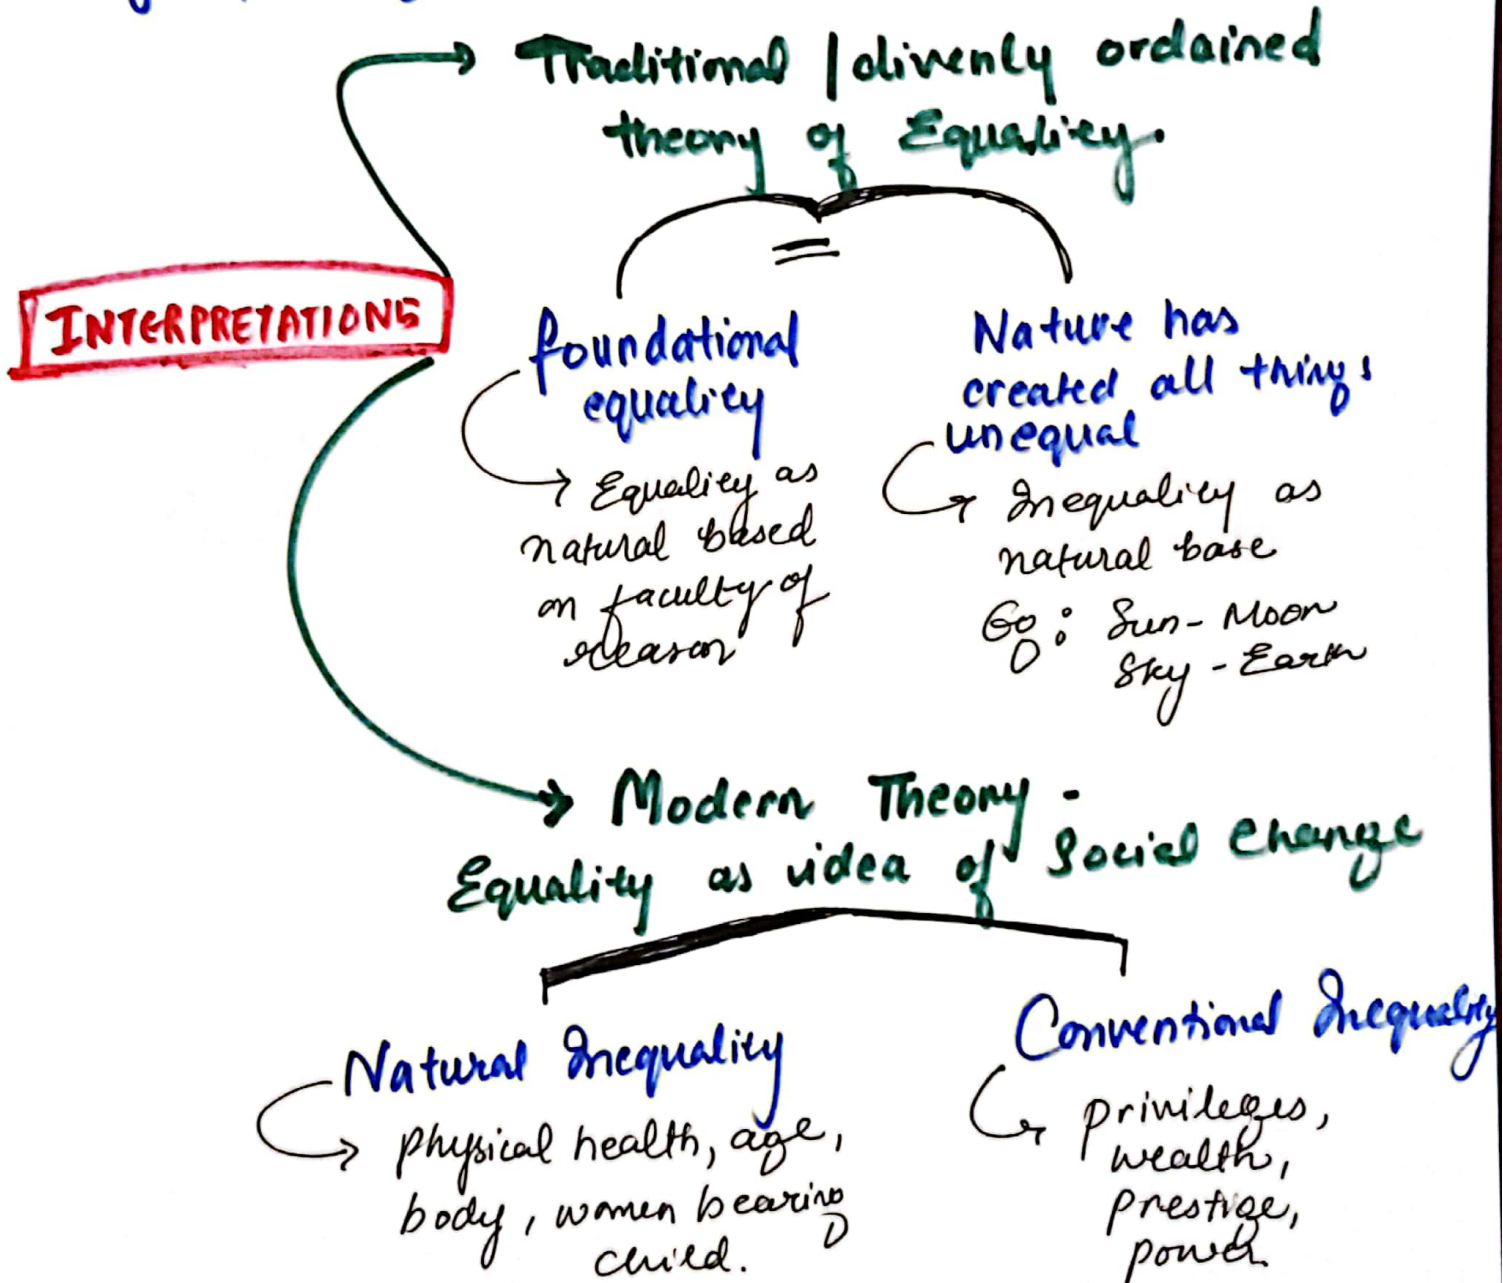 INTERPRETATIONS
Traditional / divenly ordained
theory of Equality.
foundational
equality
Equality as
natural based
on faculty of
reason
Nature has
created all things
unequal
Inequality as
natural base
Eg: Sun - Moon
Sky - Earth
Modern Theory -
Equality as idea of Social Change
Natural Inequality
physical health, age,
body, women bearing
child.
Conventional Inequality
privileges,
wealth,
prestige,
power.